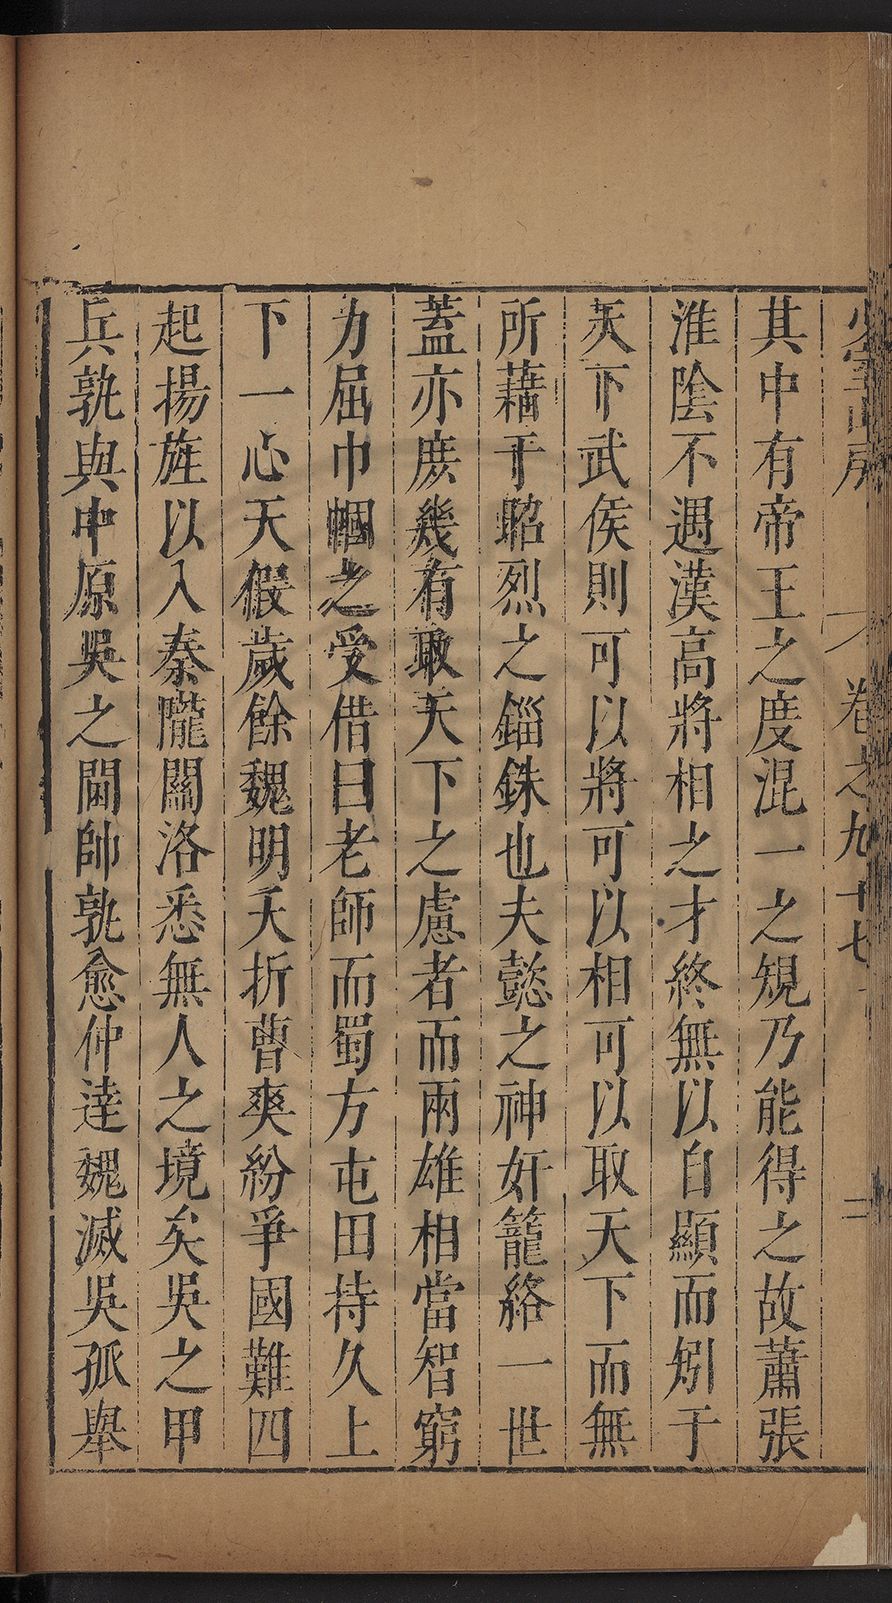 少室山房 卷之九十七 二
其中有帝王之度混一之規乃能得之故蕭張
淮陰不遇漢高將相之才終無以自顯而矧于
天下武侯則可以將可以相可以取天下而無
所藉于昭烈之錙銖也夫懿之神奸籠絡一世
蓋亦庶幾有取天下之慮者而兩雄相當智窮
力屈巾幗之受借曰老師而蜀方屯田持久上
下一心天假歲餘魏明夭折曹爽紛爭國難四
起揚旌以入秦隴關洛悉無人之境矣吳之甲
兵孰與中原吳之閫帥孰愈仲達魏滅吳孤舉